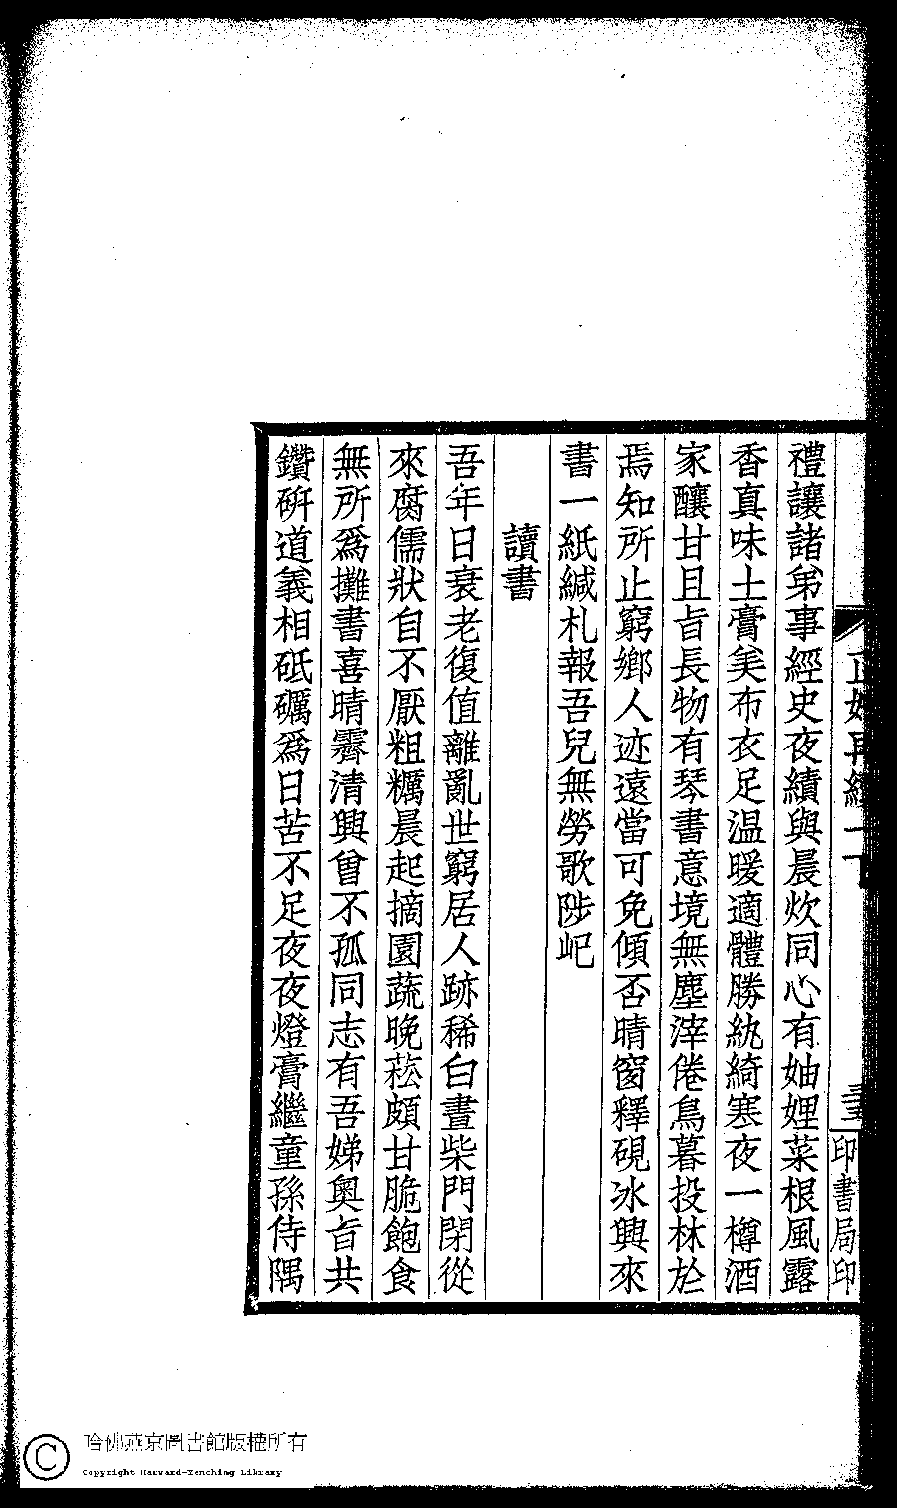 禮讓諸弟事經史夜績與晨炊同心有妯娌菜根風露
香真味土膏美布衣足温暖適體勝紈綺寒夜一樽酒
家釀甘且旨長物有琴書意境無塵滓倦鳥暮投林於
焉知所止窮鄉人迹遠當可免傾否晴窗釋硯冰興來
書一紙緘札報吾兒無勞歌陟屺
讀書
吾年日衰老復值離亂世窮居人跡稀白晝柴門閉從
來腐儒狀自不厭粗糲晨起摘園蔬晚菘頗甘脆飽食
無所爲攤書喜晴霽清興曾不孤同志有吾娣奧旨共
鑽研道義相砥礪爲日苦不足夜夜燈膏繼童孫侍隅
再續一
三
印書局印
哈佛燕京圖書館版權所有
Copyright Harvard-Yenching Library